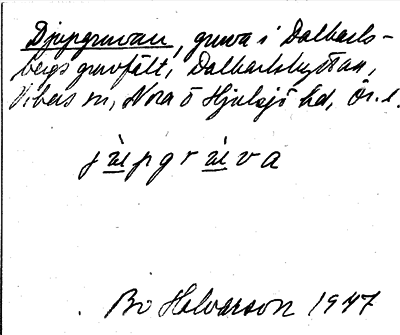 Djupgruvan, gruva i Dalkarls-
bergs gruvfält, Dalkarlshyttan,
Vikers sn, Nora o Hjulsjö hd, Ör. l.
j u̇pgr u̇va
Bo Halvarson 1947